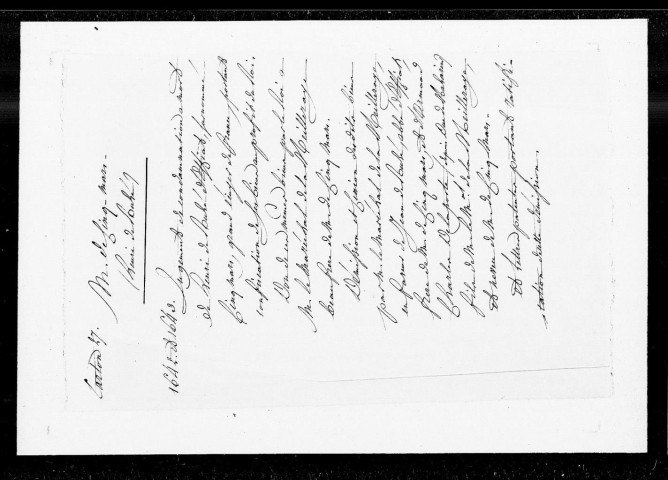 Carton 27.
M. de Cinq-mars.
(Henri de Ruzé)
1642 et 1643. Jugement de condamnation à mort
de Henri de Ruzé d'Effiat, surnommé
Cinq mars, grand écuyer de France, portant
confiscation de ses biens au profit du Roi.
Don de ces mêmes biens par le Roi à
M. le Maréchal de la Meilleraye
beau frère de M. de Cinq mars.
Démission et Cession desdits biens
par M. le Maréchal de la Meilleraye,
en faveur de Jean de Ruzé, abbé d'Effiat
frère de M. de Cinq mars, et d'Armand
Charles De la Porte,
fils de M. le Mal de la Meilleraye,
et neveu de M. de Cinq Mars.
et lettres patentes portant ratifi-
cation de cette démission.